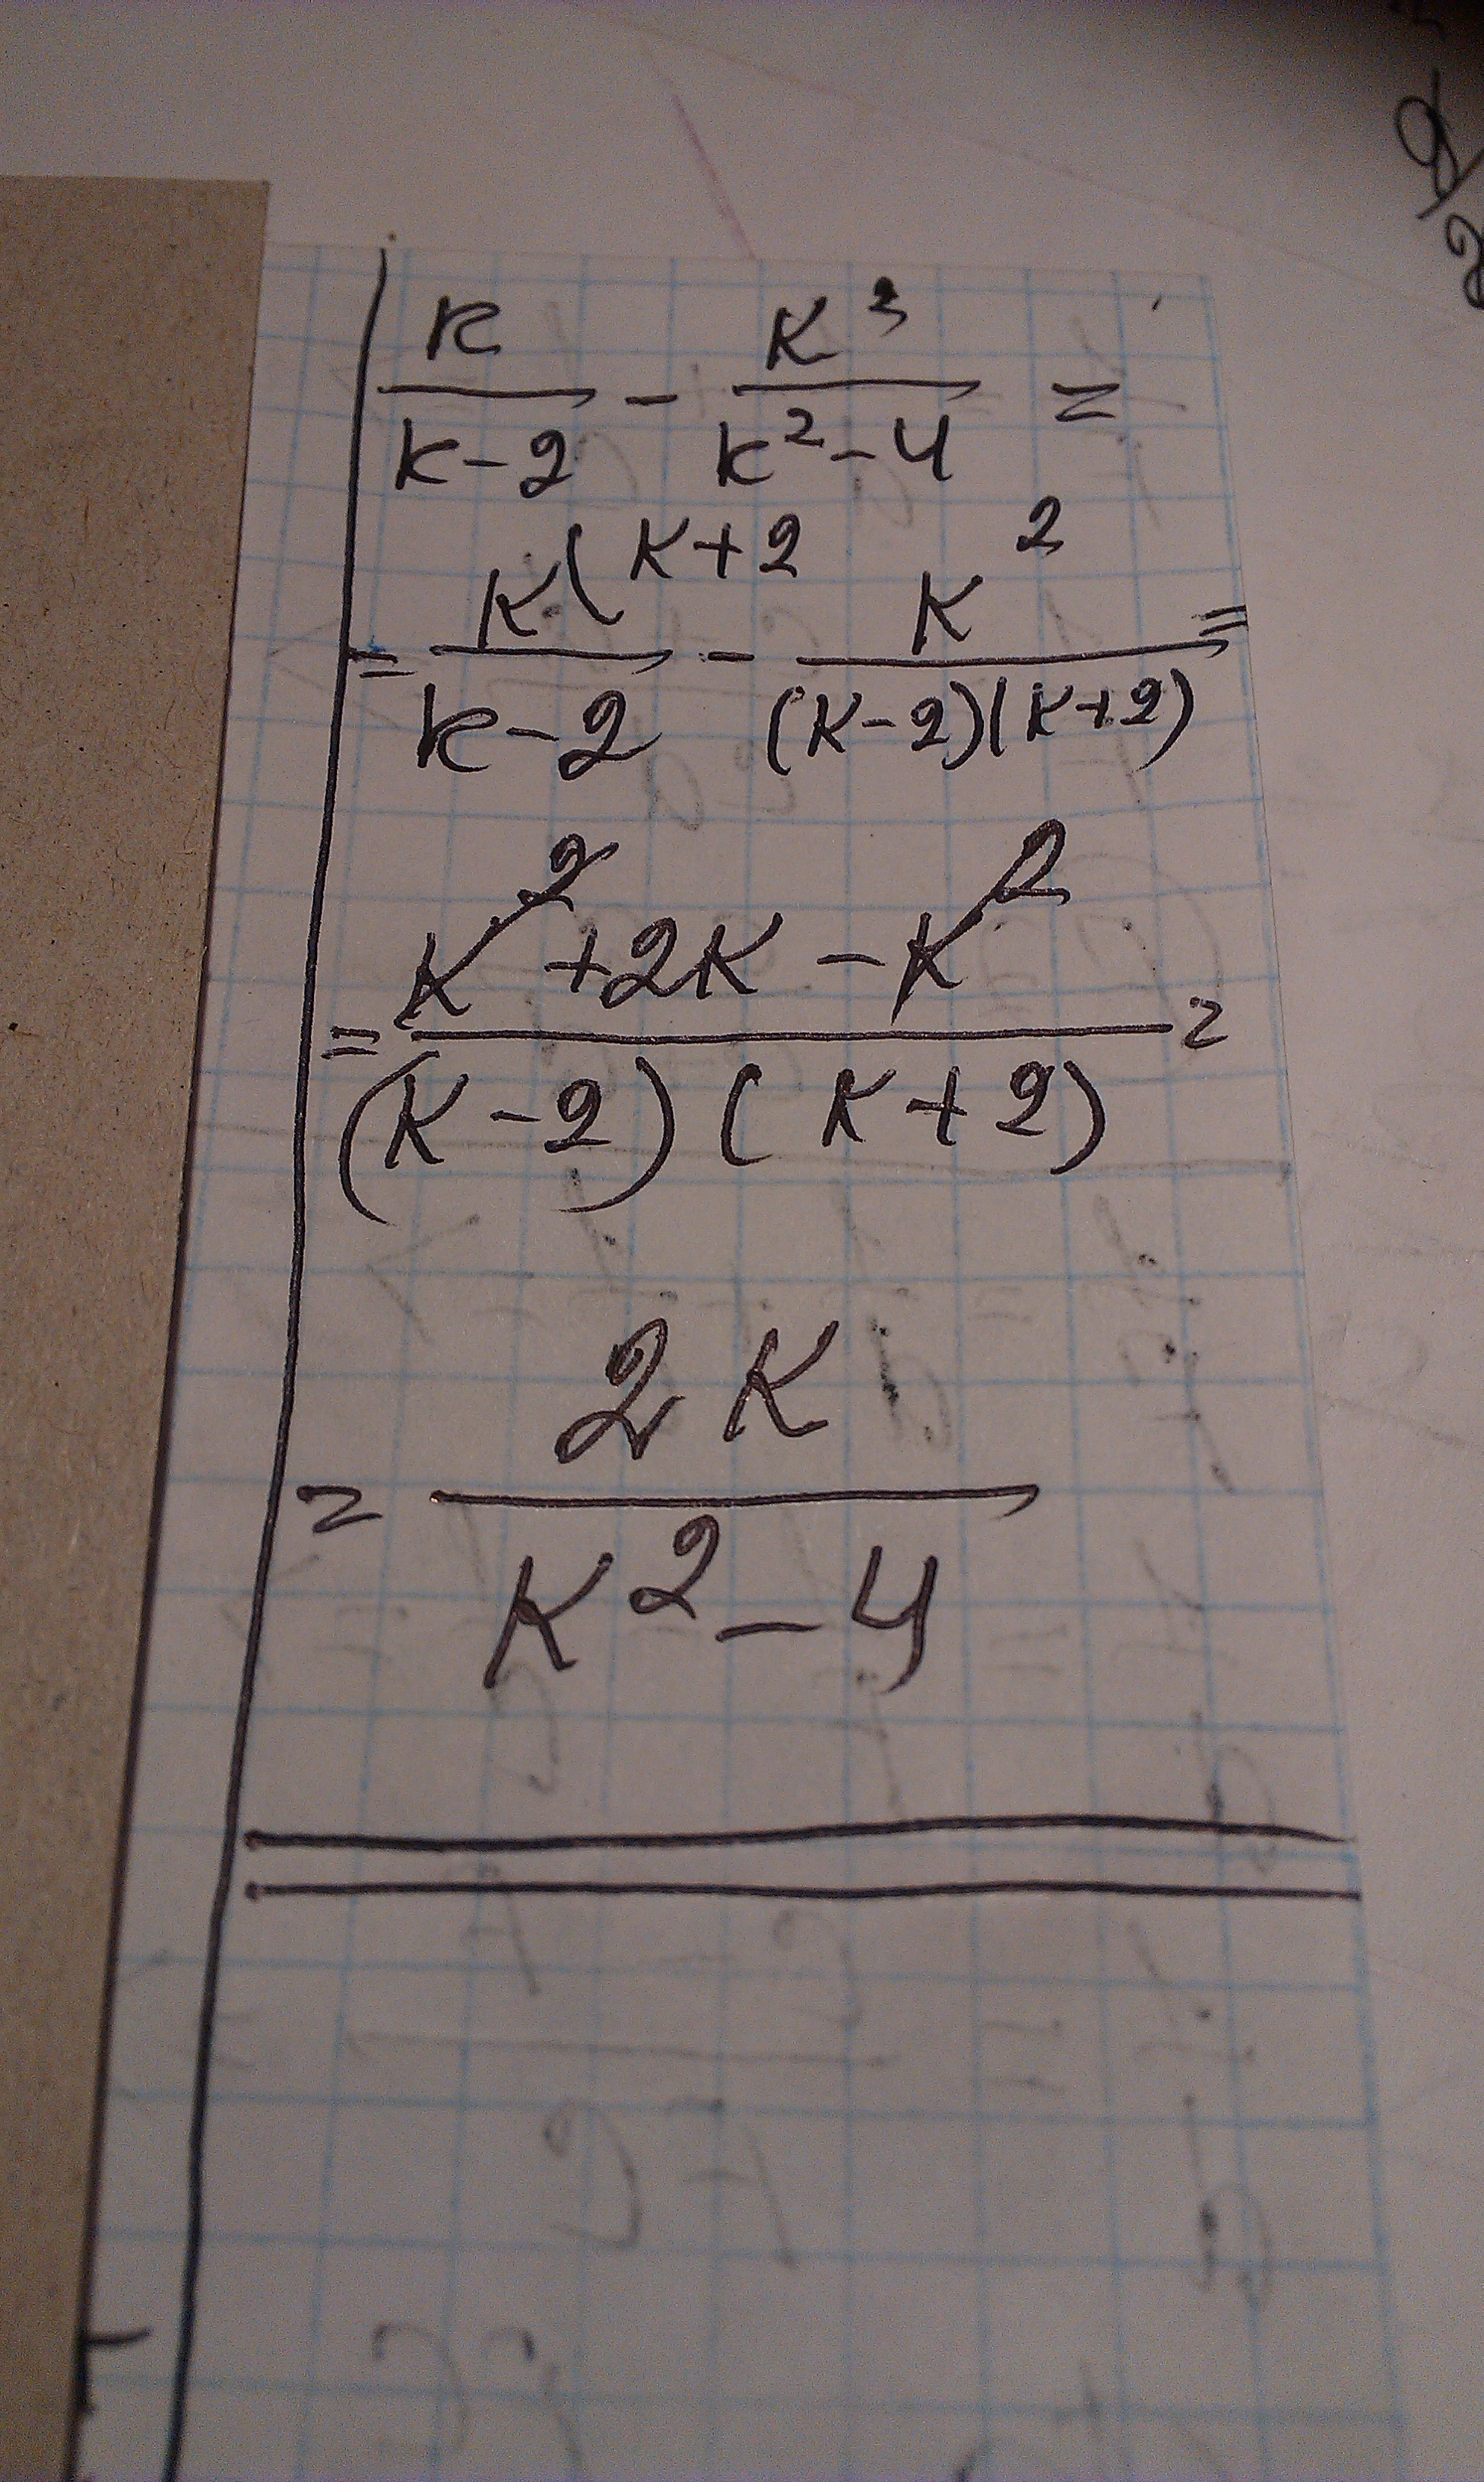 k/(k-2) - k²/(k²-4) =
= k(k+2/(k-2) - k²/((k-2)(k+2)) =
= (k²+2k-k²)/((k-2)(k+2)) =
= 2k/(k²-4)